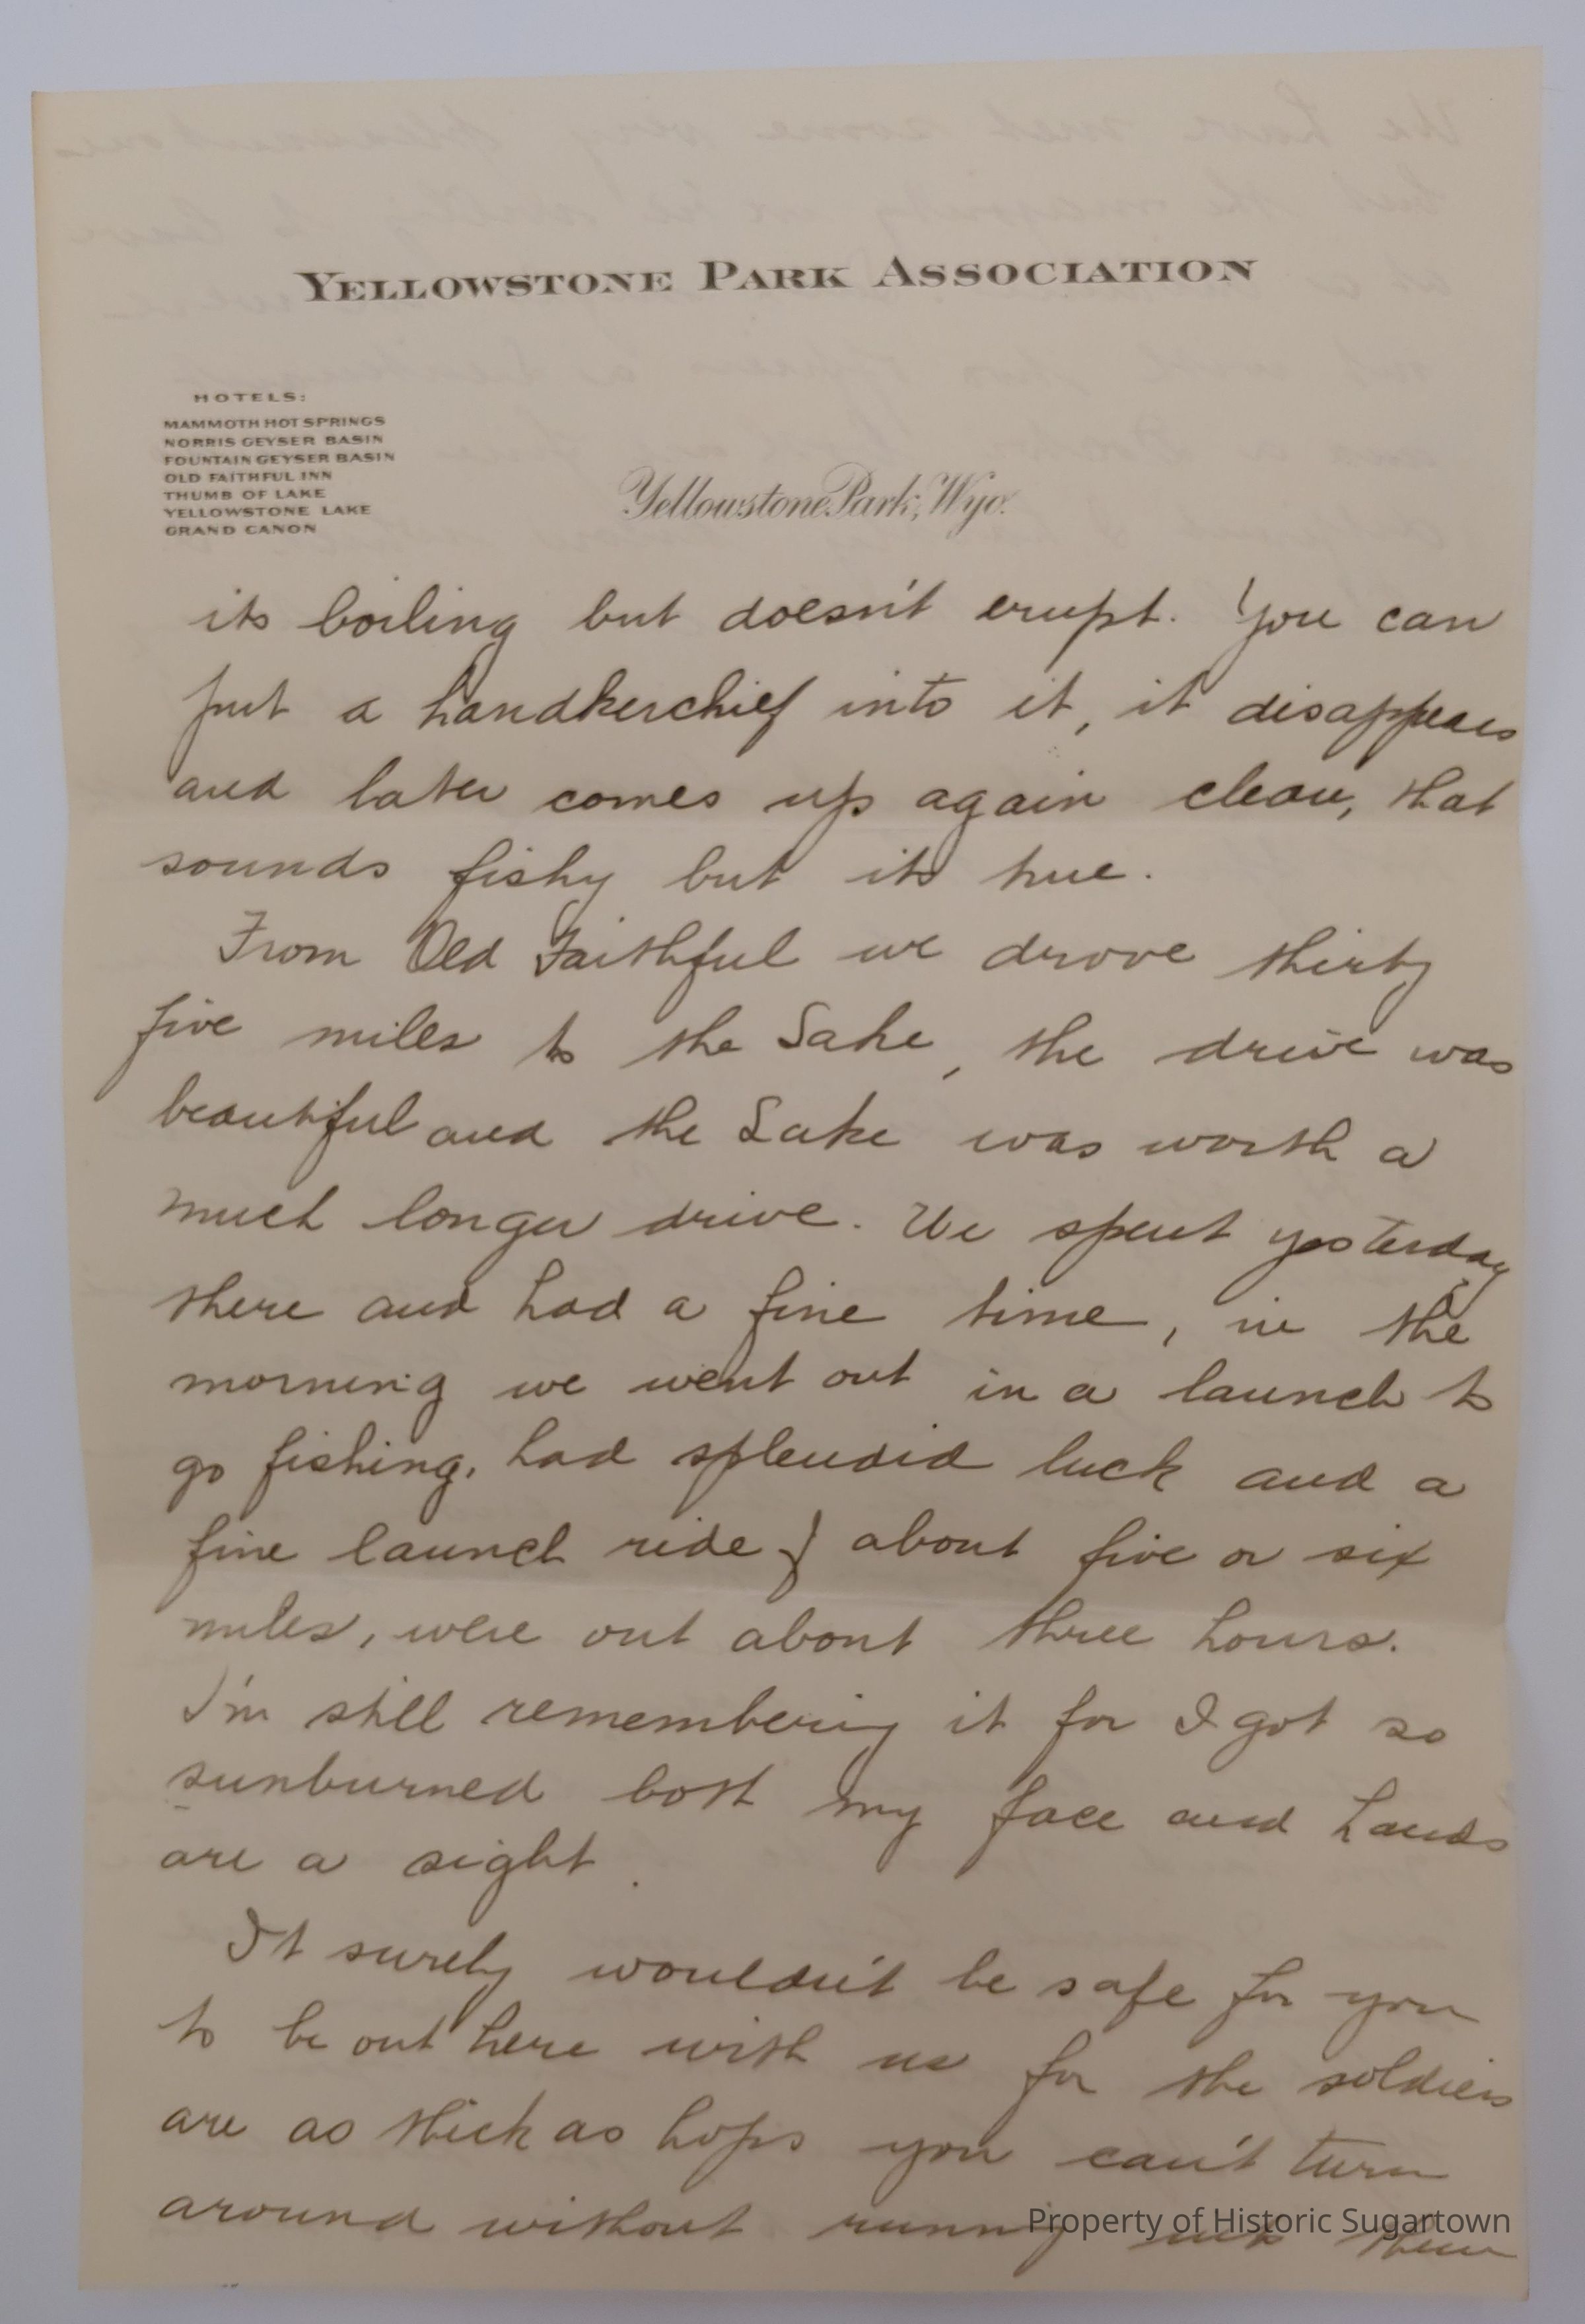 YELLOWSTONE PARK ASSOCIATION
HOTELS:
MAMMOTH HOT SPRINGS
NORRIS GEYSER BASIN
FOUNTAIN GEYSER BASIN
OLD FAITHFUL INN
THUMB OF LAKE
YELLOWSTONE LAKE
GRAND CANON
Yellowstone Park, Wyo.
its boiling but doesn't erupt. You can
put a handkerchief into it, it disappears
and later comes up again clean, that
sounds fishy but its true.
From Old Faithful we drove thirty
five miles to the Lake, the drive was
beautiful and the Lake was worth a
much longer drive. We spent yesterday
there and had a fine time, in the
morning we went out in a launch to
go fishing, had splendid luck and a
fine launch ride } about five or six
miles, were out about three hours.
I'm still remembering it for I got so
sunburned both my face and hands
are a sight.
It surely wouldn't be safe for you
to be out here with us for the soldiers
are as thick as hops you can't turn
around without running into them
Property of Historic Sugartown